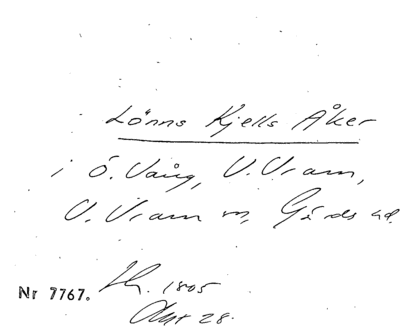 Lönns Kjells Åker
i Ö. Vång, V. Vram,
V. Vram sn, Gärds hd.
Nr 7767. Sk. 1805
Akt 28.